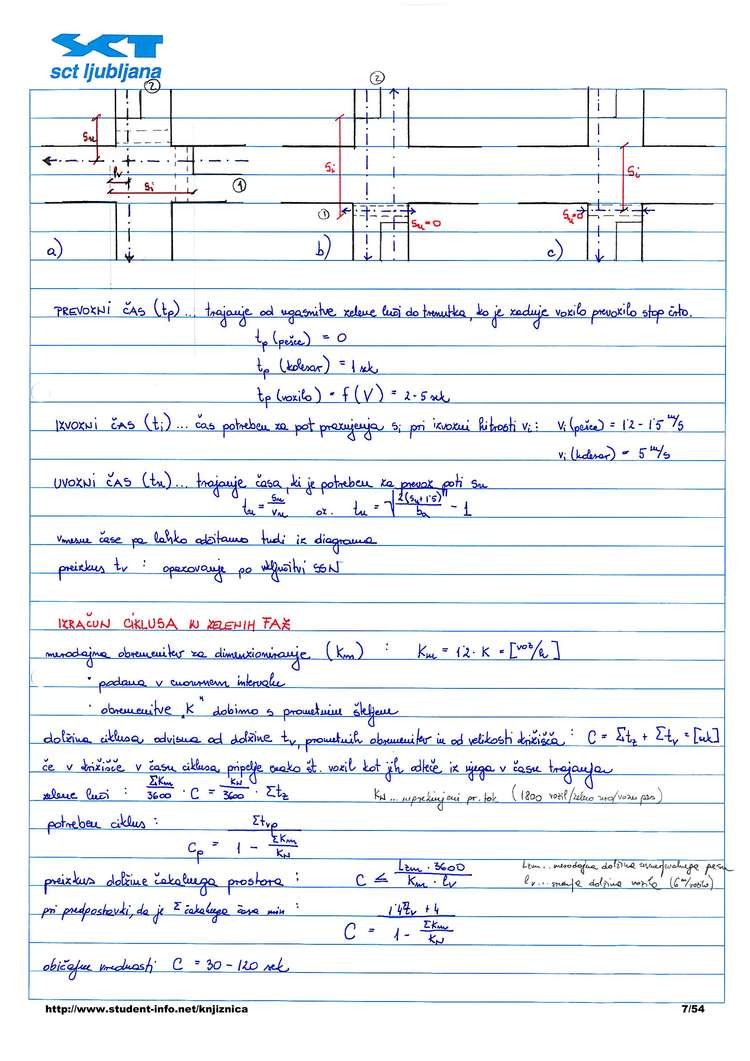 SCT
sct ljubljana
2 2
su si si
1
lv si 1 su=0 su=0
a) b) c)
PREVOZNI ČAS (tp) ... trajanje od ugasnitve zelene luči do trenutka, ko je zadnje vozilo prevozilo stop črto.
tp (pešec) = 0
tp (kolesar) = 1 sek
tp (vozilo) = f(V) = 2-5 sek
IZVOZNI ČAS (ti) ... čas potreben za pot praznjenja si pri izvozni hitrosti vi : vi (pešec) = 1'2 - 1'5 m/s
vi (kolesar) = 5 m/s
UVOZNI ČAS (tu) ... trajanje časa, ki je potreben za prevoz poti su
tu = su/vu oz. tu = √(2(su+1'5)/ba) - 1
vmesne čase pa lahko odčitamo tudi iz diagrama
preizkus tv : opazovanje po vključitvi SSN
IZRAČUN CIKLUSA IN ZELENIH FAZ
merodajna obremenitev za dimenzioniranje (Km) : Km = 1'2 · K = [voz/h]
· podana v enournem intervalu
· obremenitve "K" dobimo s prometnim štetjem
dolžina ciklusa odvisna od dolžine tv, prometnih obremenitev in od velikosti križišča : C = Σtz + Σtv = [sek]
če v križišče v času ciklusa pripelje enako št. vozil kot jih odteče iz njega v času trajanja
zelene luči : ΣKm/3600 · C = KN/3600 · Σtz KN ... neprekinjeni pr. tok (1800 vozil/zeleno uro/vozni pas)
potreben ciklus : Cp = Σtvp / (1 - ΣKm/KN)
preizkus dolžine čakalnega prostora : C ≤ Lzm · 3600 / Km · lv Lzm ... merodajna dolžina pasu
lv ... srednja dolžina vozila (6 m/vozilo)
pri predpostavki, da je Σ čakalnega časa min : C = (1'4Σtv + 4) / (1 - ΣKm/KN)
običajne vrednosti C = 30 - 120 sek
http://www.student-info.net/knjiznica 7/54